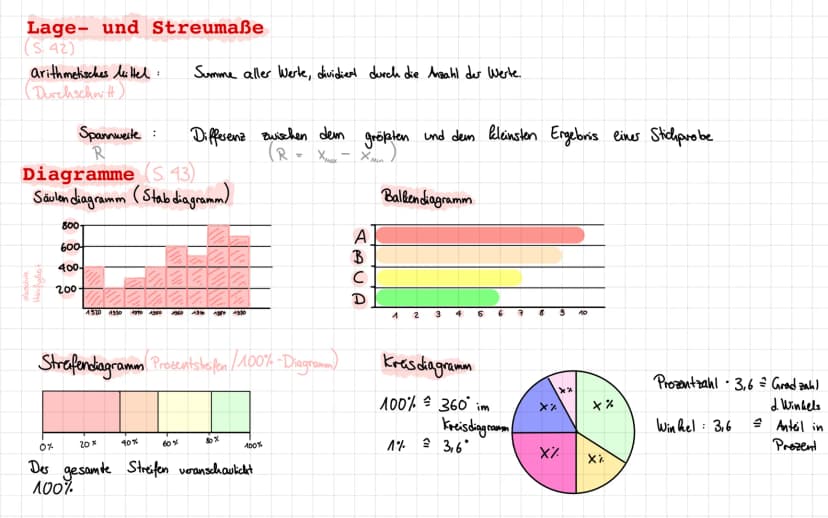 Lage- und Streumaße
(S. 42)
arithmetisches Mittel : Summe aller Werte, dividiert durch die Anzahl der Werte.
(Durchschnitt)
Spannweite : Differenz zwischen dem größten und dem kleinsten Ergebnis einer Stichprobe
R (R = Xmax - Xmin)
Diagramme (S. 43)
Säulendiagramm (Stabdiagramm) Balkendiagramm
800
600
400
200
absolute Häufigkeit
A
B
C
D
1 2 3 4 5 6 7 8 9 10
Streifendiagramm (Prozentstreifen/100%-Diagramm) Kreisdiagramm
0% 20% 40% 60% 80% 100%
Der gesamte Streifen veranschaulicht
100%
100% ≙ 360° im
Kreisdiagramm
1% ≙ 3,6°
X% X% X% X% X%
Prozentzahl · 3,6 ≙ Gradzahl
d. Winkels
Winkel : 3,6 ≙ Anteil in
Prozent